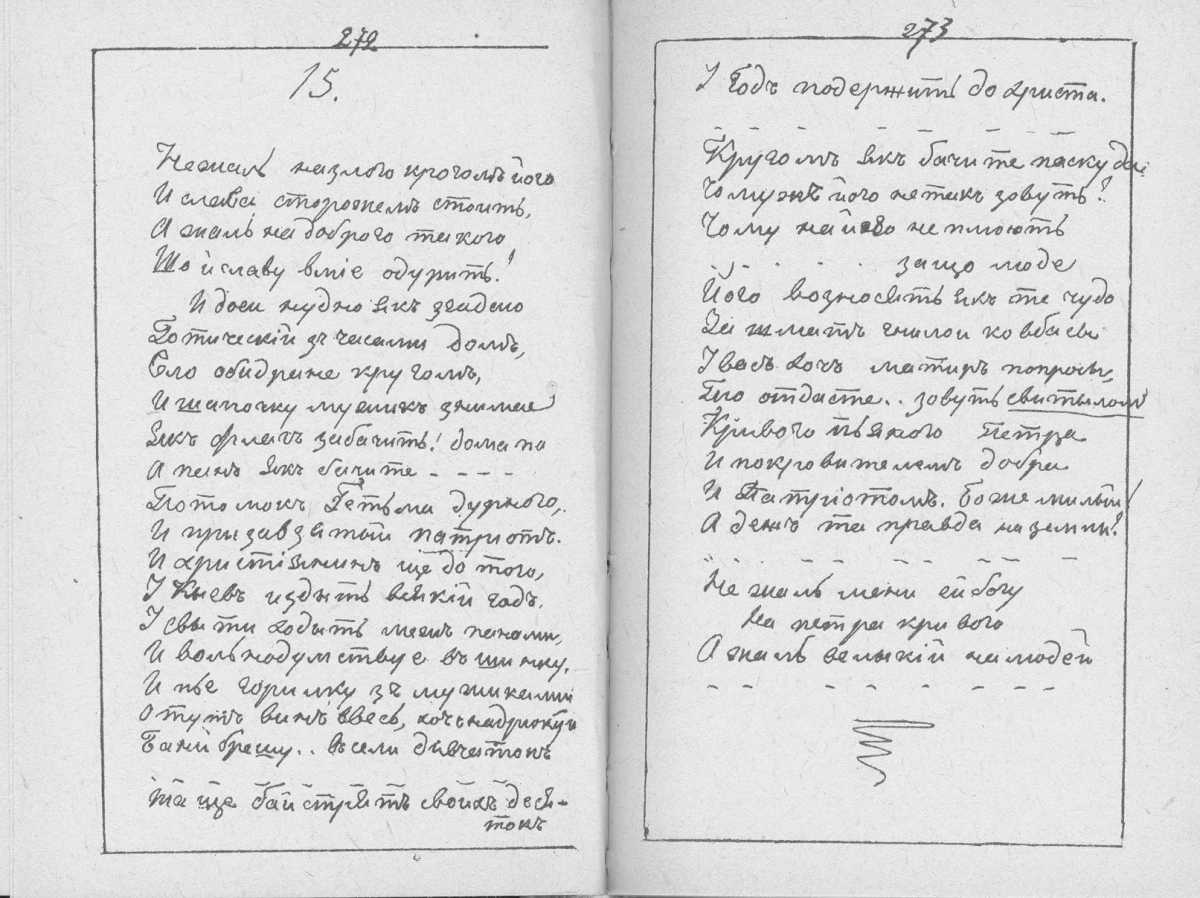 272
15.
Не жаль на злого крогомъ його
И слава сторожемъ стоить,
А жаль на доброго такого
Що й славу вміе одурить!
И доси нудно якъ згадаю
Готическій зъ часами домъ,
Село обидране кругомъ,
И шапочку мужикъ знимае
Якъ флагъ забачить!
А панъ якъ бачите - - - -
Потомокъ Гетьмана дурного,
И призавзятой патріотъ.
И христіянинъ ще до того,
У Кыевъ издыть всякій годъ.
У свыти ходыть межъ панами,
И вольнодумствуе въ шинку.
И пье горилку зъ мужиками
Отутъ винъ ввесь, хочь надрюкуй
Та ній брешу.. Въ сели дывчатокъ
Та ще байстрятъ своихъ деся-
токъ
273
У Годъ подержить до христа.
- - - - - - - - -
Кругомъ якъ бачите паскуда
Чомужъ його не такъ зовуть?
Чому на його не плюють
. . . . . за що люде
Його возносять якъ те чудо
За шматъ гнилои ковбасы
У васъ хочь матиръ попросы,
То отдасте.. зовуть святыломъ
Крівого пьяного Петра
И покровителемъ добра
И Патріотомъ. Боже милый!
А дежъ та правда на земли?
- - - - - - - - -
Не жаль мени ей богу
На петра кривого
А жаль велыкій на людей
- - - - - - - -